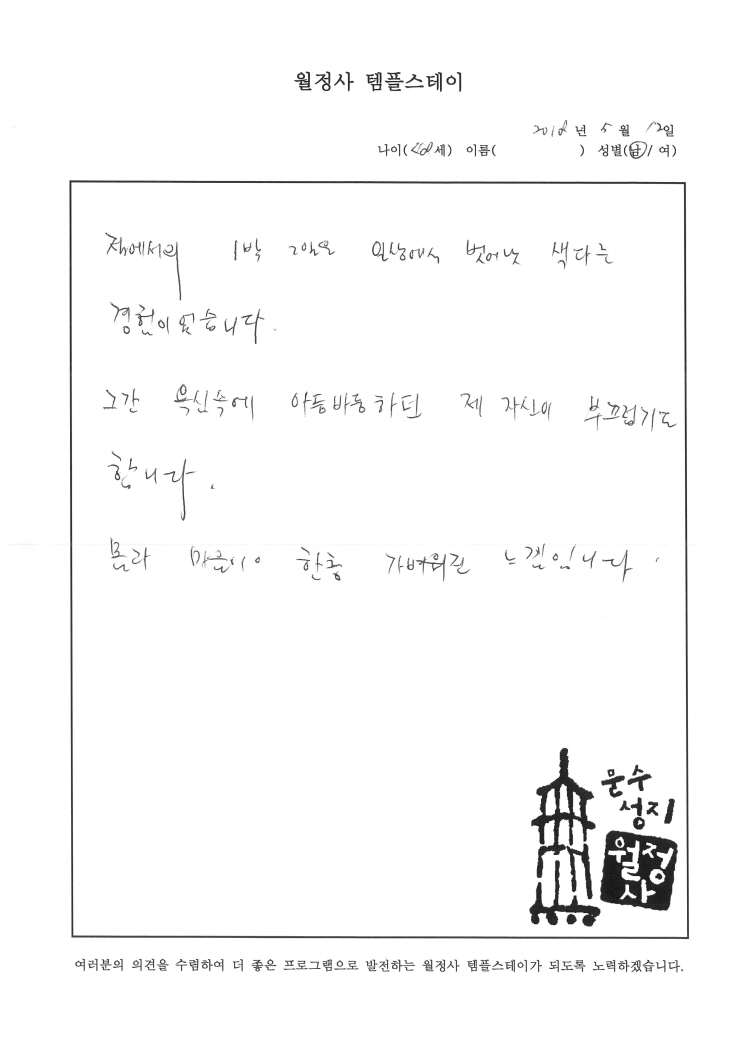 월정사 템플스테이
2018 년 5 월 12일
나이( 세) 이름( ) 성별(남/ 여)
1박 2일은 일상에서 벗어난 색다른
경험이었습니다.
그간 욕심속에 아등바등하던 제 자신이 부끄럽기도
합니다.
몸과 마음이 한층 가벼워진 느낌입니다.
문수
성지
월정
사
여러분의 의견을 수렴하여 더 좋은 프로그램으로 발전하는 월정사 템플스테이가 되도록 노력하겠습니다.